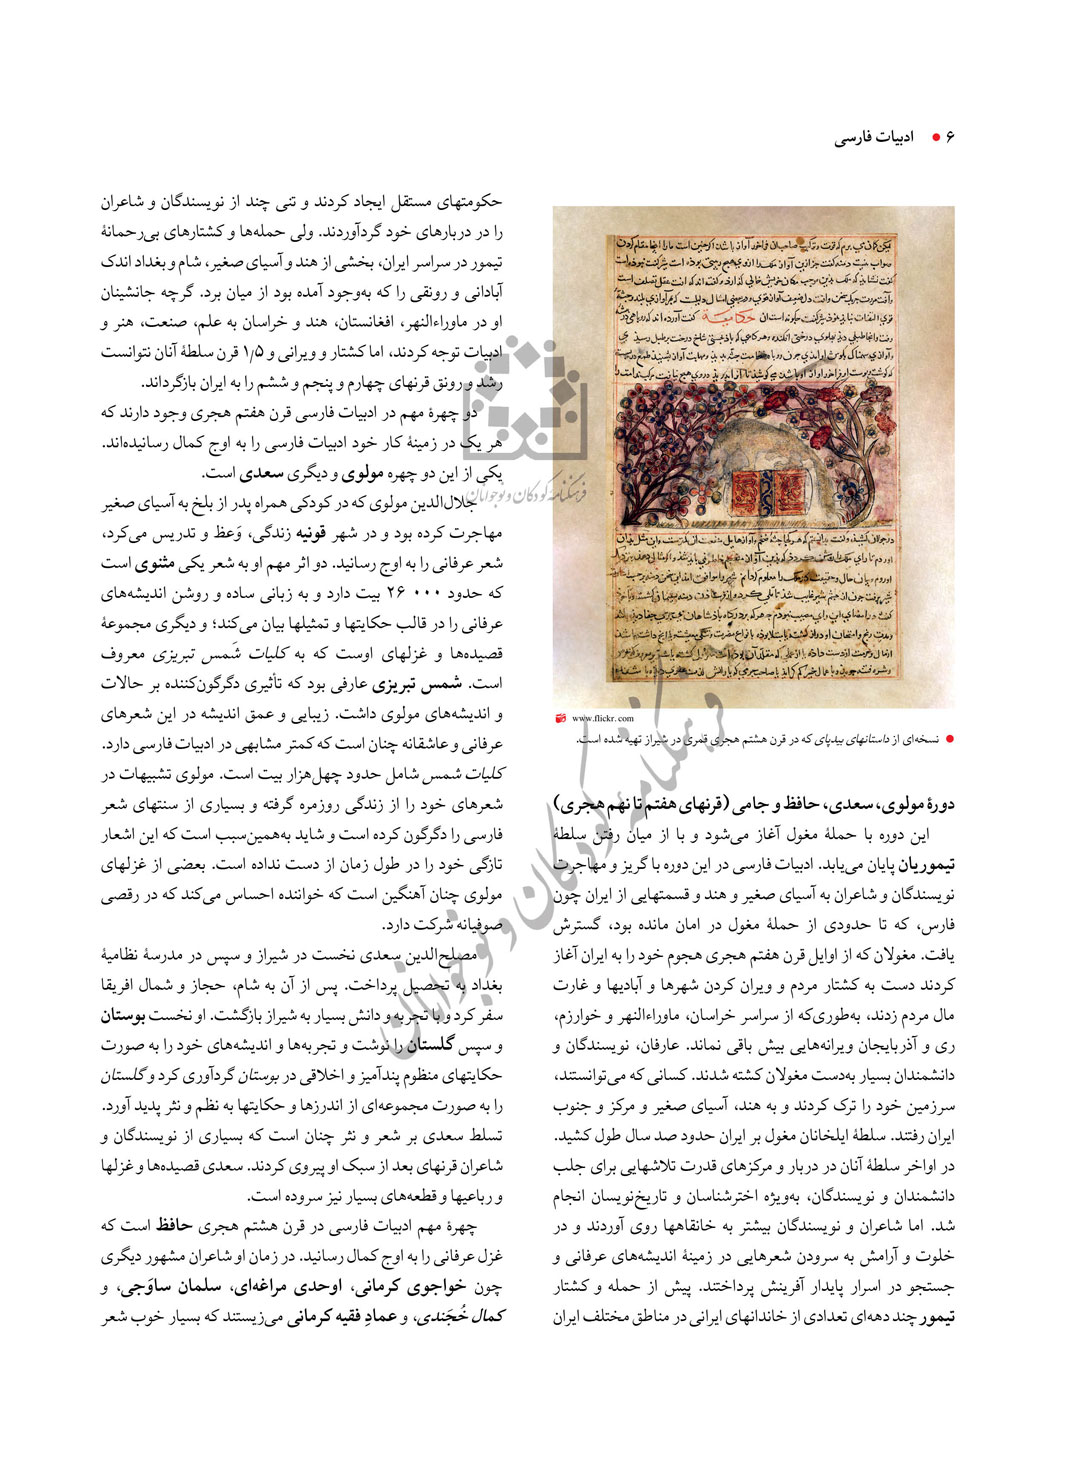 ۶ • ادبیات فارسی
www.flickr.com
• نسخه‌ای از داستانهای بیدپای که در قرن هشتم هجری قمری در شیراز تهیه شده است.
دورهٔ مولوی، سعدی، حافظ و جامی (قرنهای هفتم تا نهم هجری)
این دوره با حملهٔ مغول آغاز می‌شود و با از میان رفتن سلطهٔ
تیموریان پایان می‌یابد. ادبیات فارسی در این دوره با گریز و مهاجرت
نویسندگان و شاعران به آسیای صغیر و هند و قسمتهایی از ایران چون
فارس، که تا حدودی از حملهٔ مغول در امان مانده بود، گسترش
یافت. مغولان که از اوایل قرن هفتم هجری هجوم خود را به ایران آغاز
کردند دست به کشتار مردم و ویران کردن شهرها و آبادیها و غارت
مال مردم زدند، به‌طوری‌که از سراسر خراسان، ماوراءالنهر و خوارزم،
ری و آذربایجان ویرانه‌هایی بیش باقی نماند. عارفان، نویسندگان و
دانشمندان بسیار به‌دست مغولان کشته شدند. کسانی که می‌توانستند،
سرزمین خود را ترک کردند و به هند، آسیای صغیر و مرکز و جنوب
ایران رفتند. سلطهٔ ایلخانان مغول بر ایران حدود صد سال طول کشید.
در اواخر سلطهٔ آنان در دربار و مرکزهای قدرت تلاشهایی برای جلب
دانشمندان و نویسندگان، به‌ویژه اخترشناسان و تاریخ‌نویسان انجام
شد. اما شاعران و نویسندگان بیشتر به خانقاهها روی آوردند و در
خلوت و آرامش به سرودن شعرهایی در زمینهٔ اندیشه‌های عرفانی و
جستجو در اسرار پایدار آفرینش پرداختند. پیش از حمله و کشتار
تیمور چند دهه‌ای تعدادی از خاندانهای ایرانی در مناطق مختلف ایران
حکومتهای مستقل ایجاد کردند و تنی چند از نویسندگان و شاعران
را در دربارهای خود گردآوردند. ولی حمله‌ها و کشتارهای بی‌رحمانهٔ
تیمور در سراسر ایران، بخشی از هند و آسیای صغیر، شام و بغداد اندک
آبادانی و رونقی را که به‌وجود آمده بود از میان برد. گرچه جانشینان
او در ماوراءالنهر، افغانستان، هند و خراسان به علم، صنعت، هنر و
ادبیات توجه کردند، اما کشتار و ویرانی و ۱/۵ قرن سلطهٔ آنان نتوانست
رشد و رونق قرنهای چهارم و پنجم و ششم را به ایران بازگرداند.
دو چهرهٔ مهم در ادبیات فارسی قرن هفتم هجری وجود دارند که
هر یک در زمینهٔ کار خود ادبیات فارسی را به اوج کمال رسانیده‌اند.
یکی از این دو چهره مولوی و دیگری سعدی است.
جلال‌الدین مولوی که در کودکی همراه پدر از بلخ به آسیای صغیر
مهاجرت کرده بود و در شهر قونیه زندگی، وَعظ و تدریس می‌کرد،
شعر عرفانی را به اوج رسانید. دو اثر مهم او به شعر یکی مثنوی است
که حدود ۲۶ ۰۰۰ بیت دارد و به زبانی ساده و روشن اندیشه‌های
عرفانی را در قالب حکایتها و تمثیلها بیان می‌کند؛ و دیگری مجموعهٔ
قصیده‌ها و غزلهای اوست که به کلیات شَمس تبریزی معروف
است. شمس تبریزی عارفی بود که تأثیری دگرگون‌کننده بر حالات
و اندیشه‌های مولوی داشت. زیبایی و عمق اندیشه در این شعرهای
عرفانی و عاشقانه چنان است که کمتر مشابهی در ادبیات فارسی دارد.
کلیات شمس شامل حدود چهل‌هزار بیت است. مولوی تشبیهات در
شعرهای خود را از زندگی روزمره گرفته و بسیاری از سنتهای شعر
فارسی را دگرگون کرده است و شاید به‌همین‌سبب است که این اشعار
تازگی خود را در طول زمان از دست نداده است. بعضی از غزلهای
مولوی چنان آهنگین است که خواننده احساس می‌کند که در رقصی
صوفیانه شرکت دارد.
مصلح‌الدین سعدی نخست در شیراز و سپس در مدرسهٔ نظامیهٔ
بغداد به تحصیل پرداخت. پس از آن به شام، حجاز و شمال افریقا
سفر کرد و با تجربه و دانش بسیار به شیراز بازگشت. او نخست بوستان
و سپس گلستان را نوشت و تجربه‌ها و اندیشه‌های خود را به صورت
حکایتهای منظوم پندآمیز و اخلاقی در بوستان گردآوری کرد و گلستان
را به صورت مجموعه‌ای از اندرزها و حکایتها به نظم و نثر پدید آورد.
تسلط سعدی بر شعر و نثر چنان است که بسیاری از نویسندگان و
شاعران قرنهای بعد از سبک او پیروی کردند. سعدی قصیده‌ها و غزلها
و رباعیها و قطعه‌های بسیار نیز سروده است.
چهرهٔ مهم ادبیات فارسی در قرن هشتم هجری حافظ است که
غزل عرفانی را به اوج کمال رسانید. در زمان او شاعران مشهور دیگری
چون خواجوی کرمانی، اوحدی مراغه‌ای، سلمان ساوَجی، و
کمال خُجَندی، و عمادِ فقیه کرمانی می‌زیستند که بسیار خوب شعر
فرهنگنامه کودکان و نوجوانان
فرهنگنامه کودکان و نوجوانان